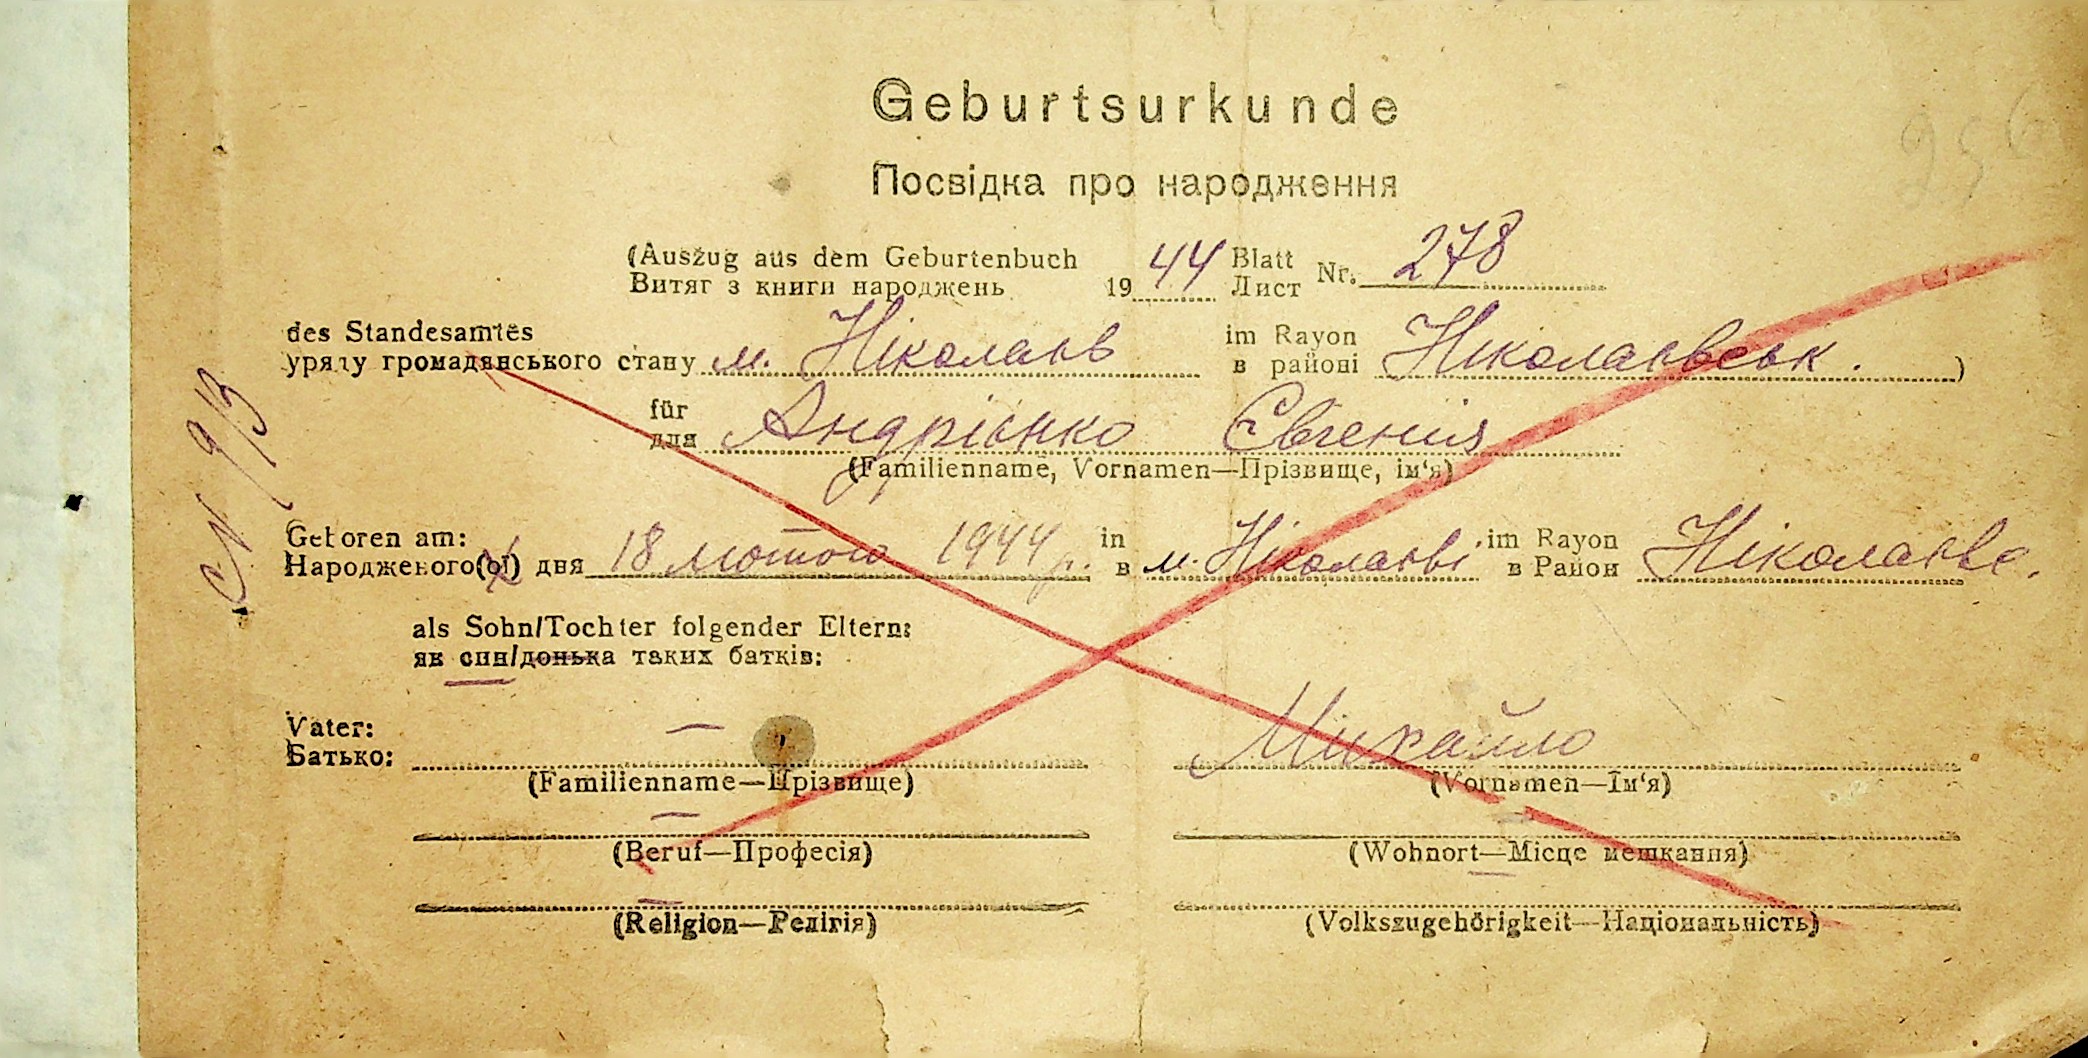 Geburtsurkunde
Посвідка про народження
(Auszug aus dem Geburtenbuch 1944 Blatt Nr. 278
Витяг з книги народжень Лист
des Standesamtes im Rayon
уряду громадянського стану м. Ніколаєв в районі Ніколаєвськ.)
für
для Андрієнко Євгенія
(Familienname, Vornamen—Прізвище, ім‘я)
Geboren am: in im Rayon
Народженого(ої) дня 18 лютого 1944 р. в м. Ніколаєві в Район Ніколаєвс.
als Sohn/Tochter folgender Eltern:
як син/донька таких батків:
Vater:
Батько: — Михайло
(Familienname—Прізвище) (Vornamen—Ім‘я)
—
(Beruf—Професія) (Wohnort—Місце мешкання)
—
(Religion—Релігія) (Volkszugehörigkeit—Національність)